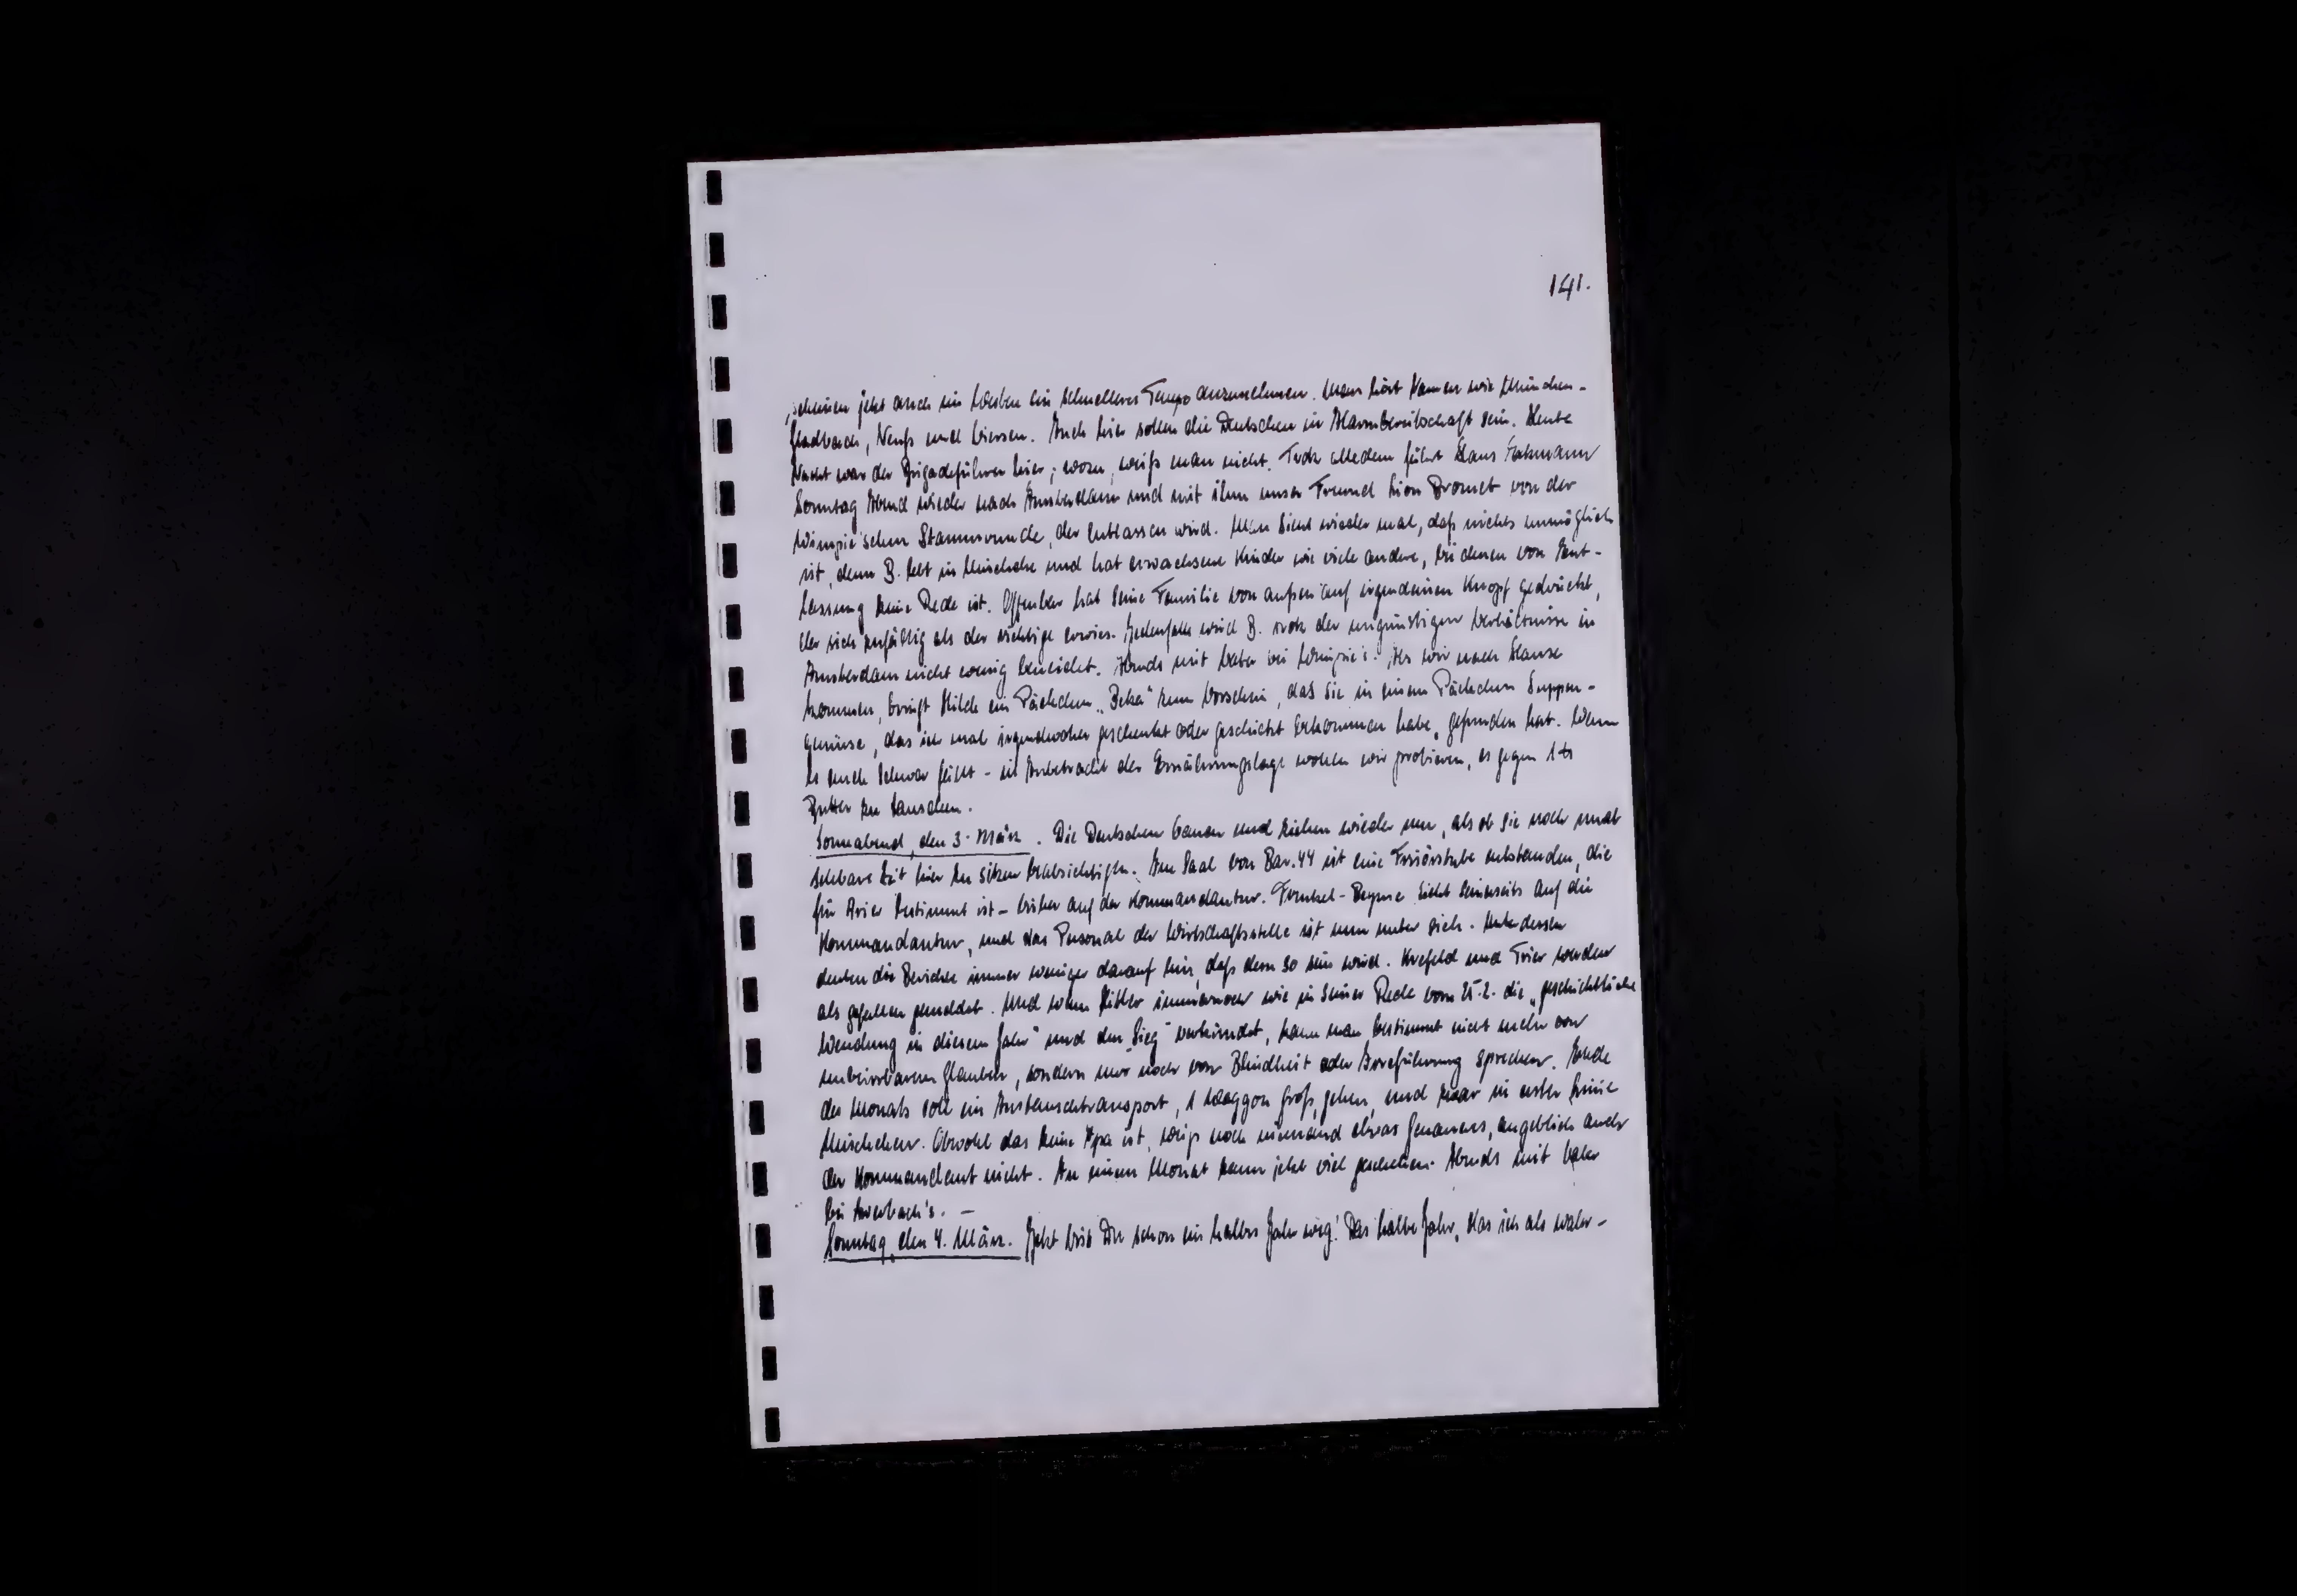 141.
scheinen jetzt auch im Westen ein schnelleres Tempo anzunehmen. Man hört Namen wie München-
Gladbach, Neuß und Viersen. Auch hier sollen die Deutschen in Alarmbereitschaft sein. Heute
Nacht war der Brigadeführer hier; wozu, weiß man nicht. Trotz alledem fährt Hans
Sonntag Abend wieder nach Amsterdam und mit ihm unser Freund Lion Bromet von der
Wimpie'schen Stammrunde, der entlassen wird. Man sieht wieder mal, daß nichts unmöglich
ist, denn B. lebt in Mischehe und hat erwachsene Kinder wie viele andere, bei denen von Ent-
lassung keine Rede ist. Offenbar hat seine Familie von außen auf irgendeinen Knopf gedrückt,
der sich zufällig als der richtige erwies. Jedenfalls wird B. trotz der ungünstigen Verhältnisse in
Amsterdam nicht wenig beneidet. Abends mit Vater bei Wimpie's. Als wir nach Hause
kommen, bringt Hilde ein Päckchen „Beka“ zum Vorschein, das sie in einem Päckchen Suppen-
gemüse, das ich mal irgendwoher geschenkt oder geschickt bekommen habe, gefunden hat. Wenn
es auch schwer fällt - in Anbetracht der Ernährungslage wollen wir probieren, es gegen 1 ℔
Butter zu tauschen.
Sonnabend, den 3. März. Die Deutschen bauen und ziehen wieder um, als ob sie noch unab-
sehbare Zeit hier zu sitzen beabsichtigen. Im Saal von Bar. 44 ist eine Frisörstube entstanden, die
für Arier bestimmt ist - bisher auf der Kommandantur. zieht seinerseits auf die
Kommandantur, und das Personal der Wirtschaftsstelle ist nun unter sich. Unterdessen
deuten die Berichte immer weniger darauf hin, daß dem so sein wird. Krefeld und Trier werden
als gefallen gemeldet. Und wenn Hitler immernoch wie in seiner Rede vom 25.2. die „geschichtliche
Wendung in diesem Jahr“ und den „Sieg“ verkündet, kann man bestimmt nicht mehr von
unbeirrbarem Glauben, sondern nur noch von Blindheit oder Irreführung sprechen. Ende
des Monats soll ein Austauschtransport, 1 Waggon groß, gehen, und zwar in erster Linie
Mischehen. Obwohl das keine Ipa ist, weiß noch niemand etwas Genaueres, angeblich auch
der Kommandant nicht. In einem Monat kann jetzt viel geschehen. Abends mit Vater
bei Auerbach's. —
Sonntag, den 4. März. Jetzt bist Du schon ein halbes Jahr weg! Das halbe Jahr, das ich als wahr-